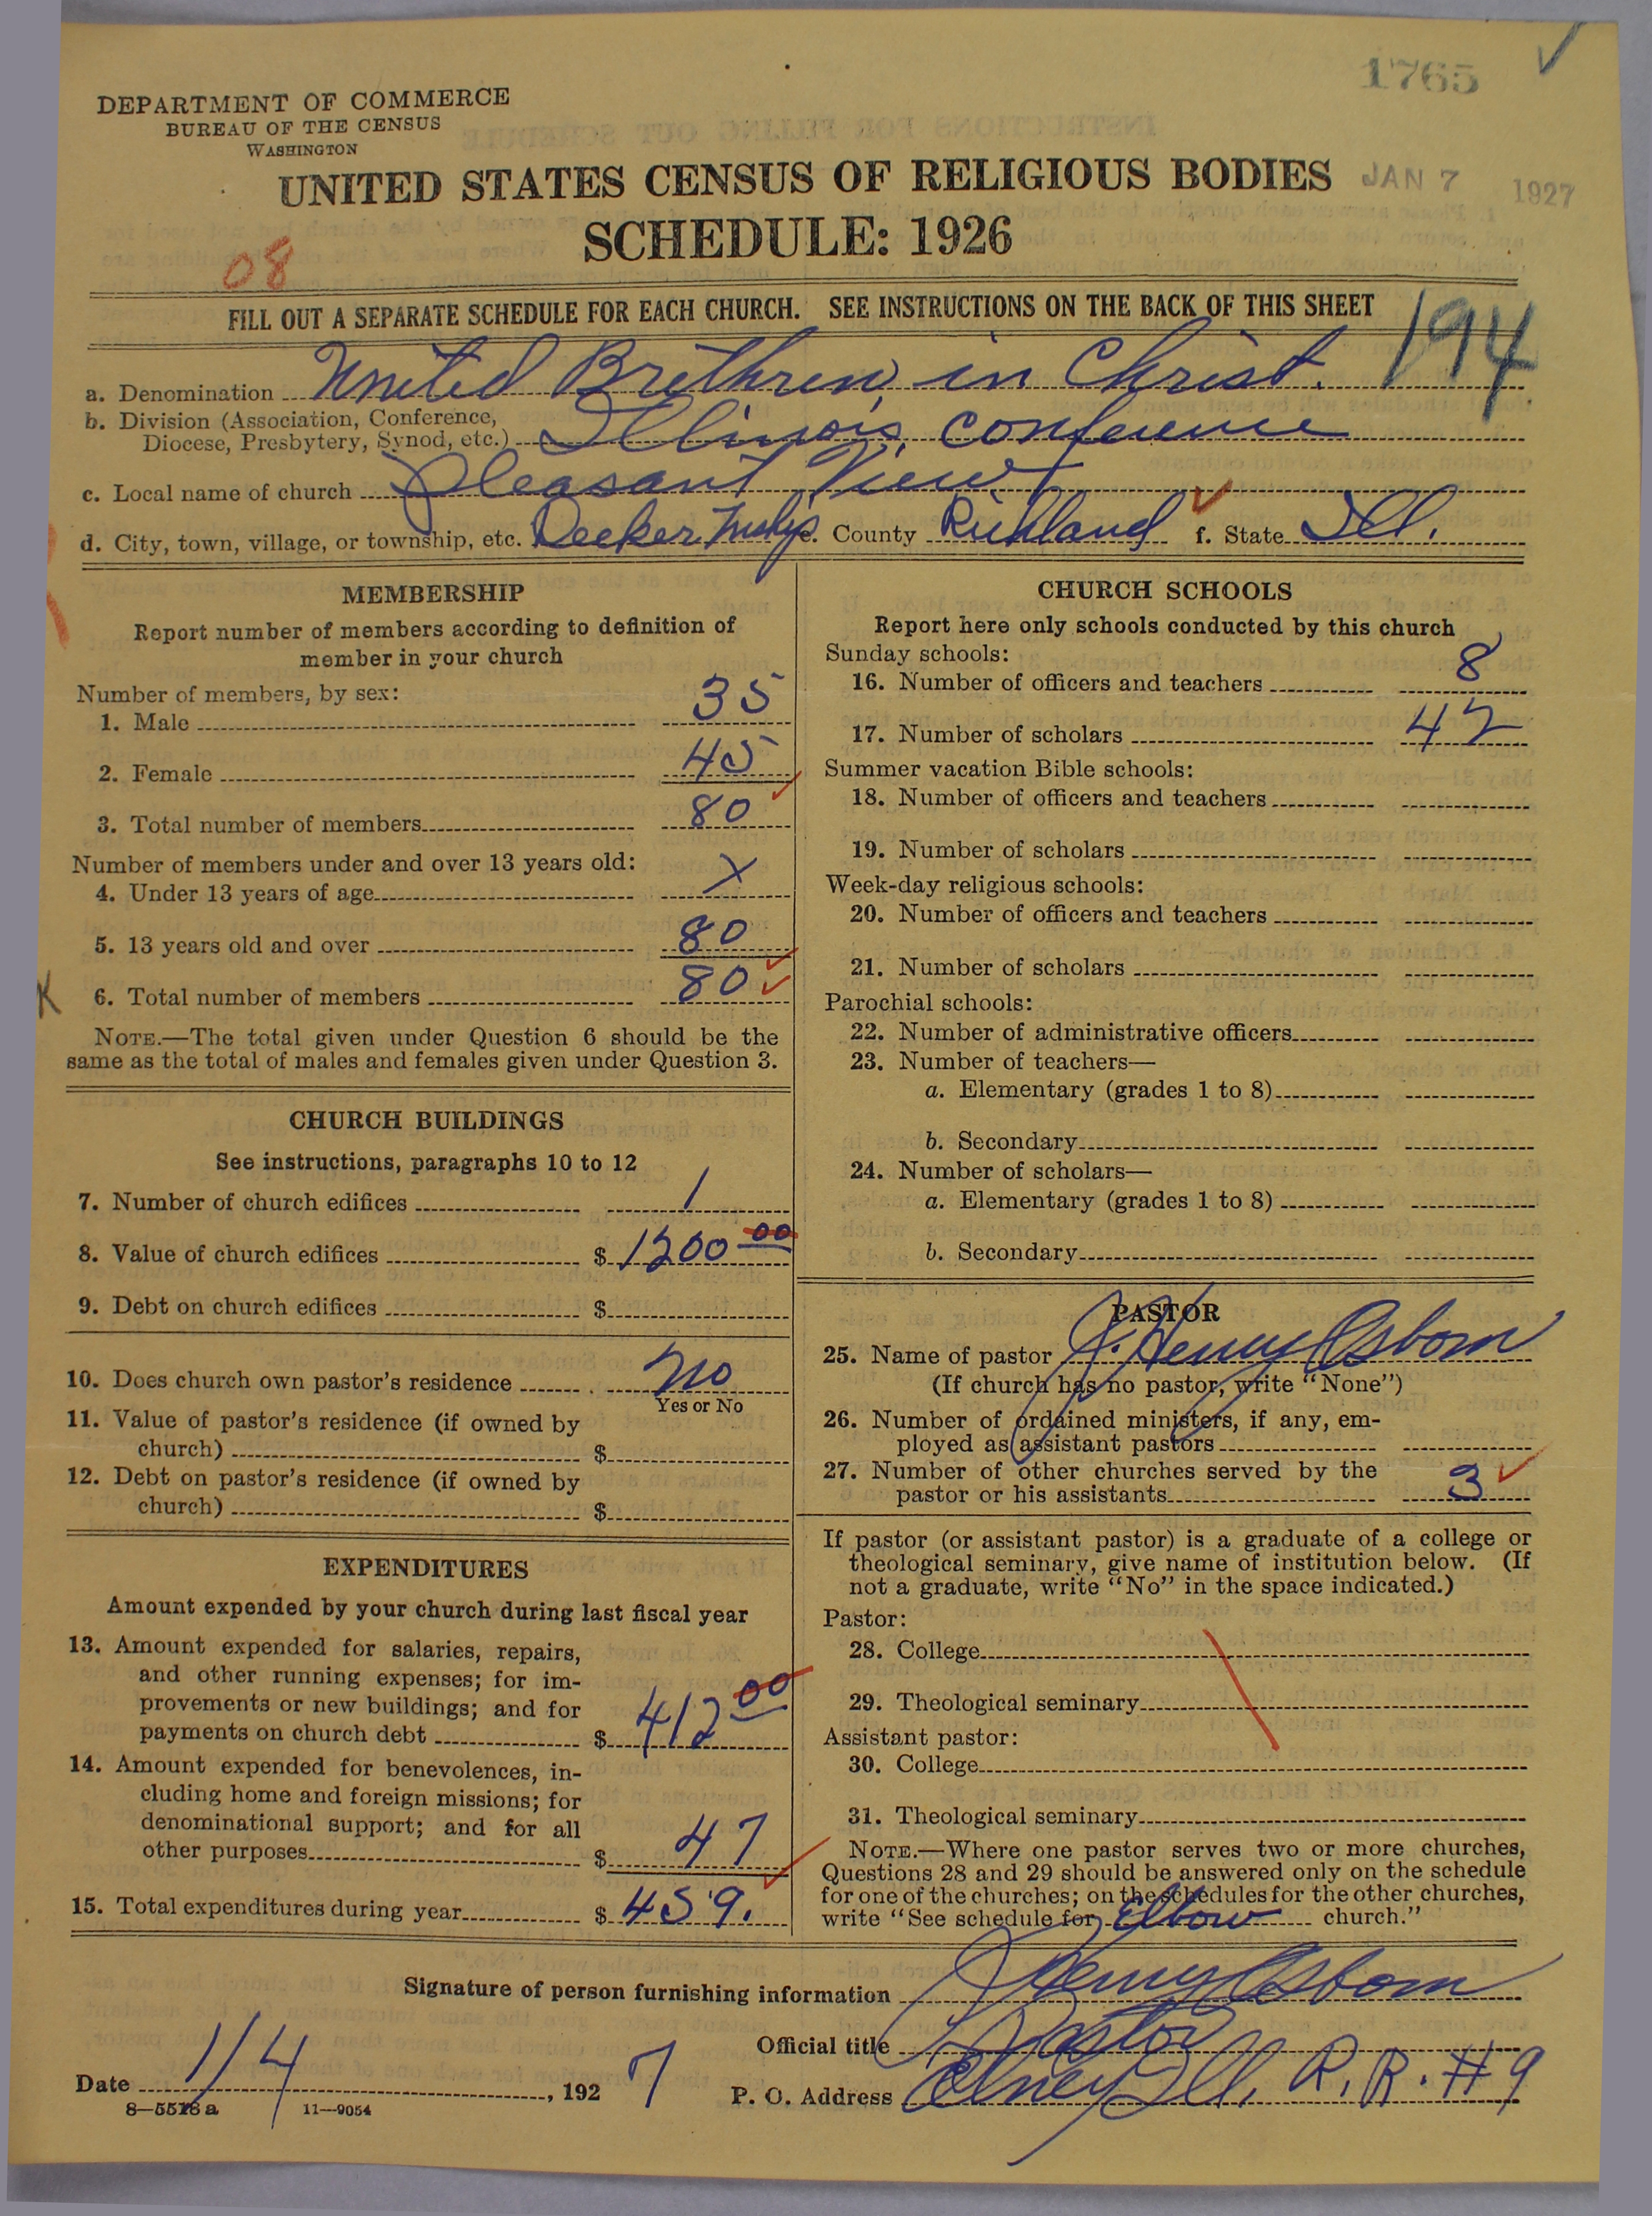 1765
DEPARTMENT OF COMMERCE
BUREAU OF THE CENSUS
WASHINGTON
UNITED STATES CENSUS OF RELIGIOUS BODIES
JAN 7 1927
SCHEDULE: 1926
08
FILL OUT A SEPARATE SCHEDULE FOR EACH CHURCH. SEE INSTRUCTIONS ON THE BACK OF THIS SHEET
194
a. Denomination United Brethren in Christ.
b. Division (Association, Conference,
Diocese, Presbytery, Synod, etc.) Illinois Conference
c. Local name of church Pleasant View
d. City, town, village, or township, etc. Decker Twshp e. County Richland f. State Ill.
MEMBERSHIP
Report number of members according to definition of
member in your church
Number of members, by sex:
1. Male 35
2. Female 45
3. Total number of members 80
Number of members under and over 13 years old:
4. Under 13 years of age X
5. 13 years old and over 80
K
6. Total number of members 80
NOTE.—The total given under Question 6 should be the
same as the total of males and females given under Question 3.
CHURCH BUILDINGS
See instructions, paragraphs 10 to 12
7. Number of church edifices 1
8. Value of church edifices $ 1200 00
9. Debt on church edifices $
10. Does church own pastor's residence no
Yes or No
11. Value of pastor's residence (if owned by
church) $
12. Debt on pastor's residence (if owned by
church) $
EXPENDITURES
Amount expended by your church during last fiscal year
13. Amount expended for salaries, repairs,
and other running expenses; for im-
provements or new buildings; and for
payments on church debt $ 412 00
14. Amount expended for benevolences, in-
cluding home and foreign missions; for
denominational support; and for all
other purposes $ 47
15. Total expenditures during year $ 459.
CHURCH SCHOOLS
Report here only schools conducted by this church
Sunday schools:
16. Number of officers and teachers 8
17. Number of scholars 42
Summer vacation Bible schools:
18. Number of officers and teachers
19. Number of scholars
Week-day religious schools:
20. Number of officers and teachers
21. Number of scholars
Parochial schools:
22. Number of administrative officers
23. Number of teachers—
a. Elementary (grades 1 to 8)
b. Secondary
24. Number of scholars—
a. Elementary (grades 1 to 8)
b. Secondary
PASTOR
25. Name of pastor J. Henry Osborn
(If church has no pastor, write "None")
26. Number of ordained ministers, if any, em-
ployed as assistant pastors
27. Number of other churches served by the
pastor or his assistants 3
If pastor (or assistant pastor) is a graduate of a college or
theological seminary, give name of institution below. (If
not a graduate, write "No" in the space indicated.)
Pastor:
28. College
29. Theological seminary
Assistant pastor:
30. College
31. Theological seminary
NOTE.—Where one pastor serves two or more churches,
Questions 28 and 29 should be answered only on the schedule
for one of the churches; on the schedules for the other churches,
write "See schedule for Elbow church."
Signature of person furnishing information J Henry Osborn
Official title Pastor
Date 1/4, 192 7
P. O. Address Olney Ill. R.R. #9
8—5518 a 11—9054